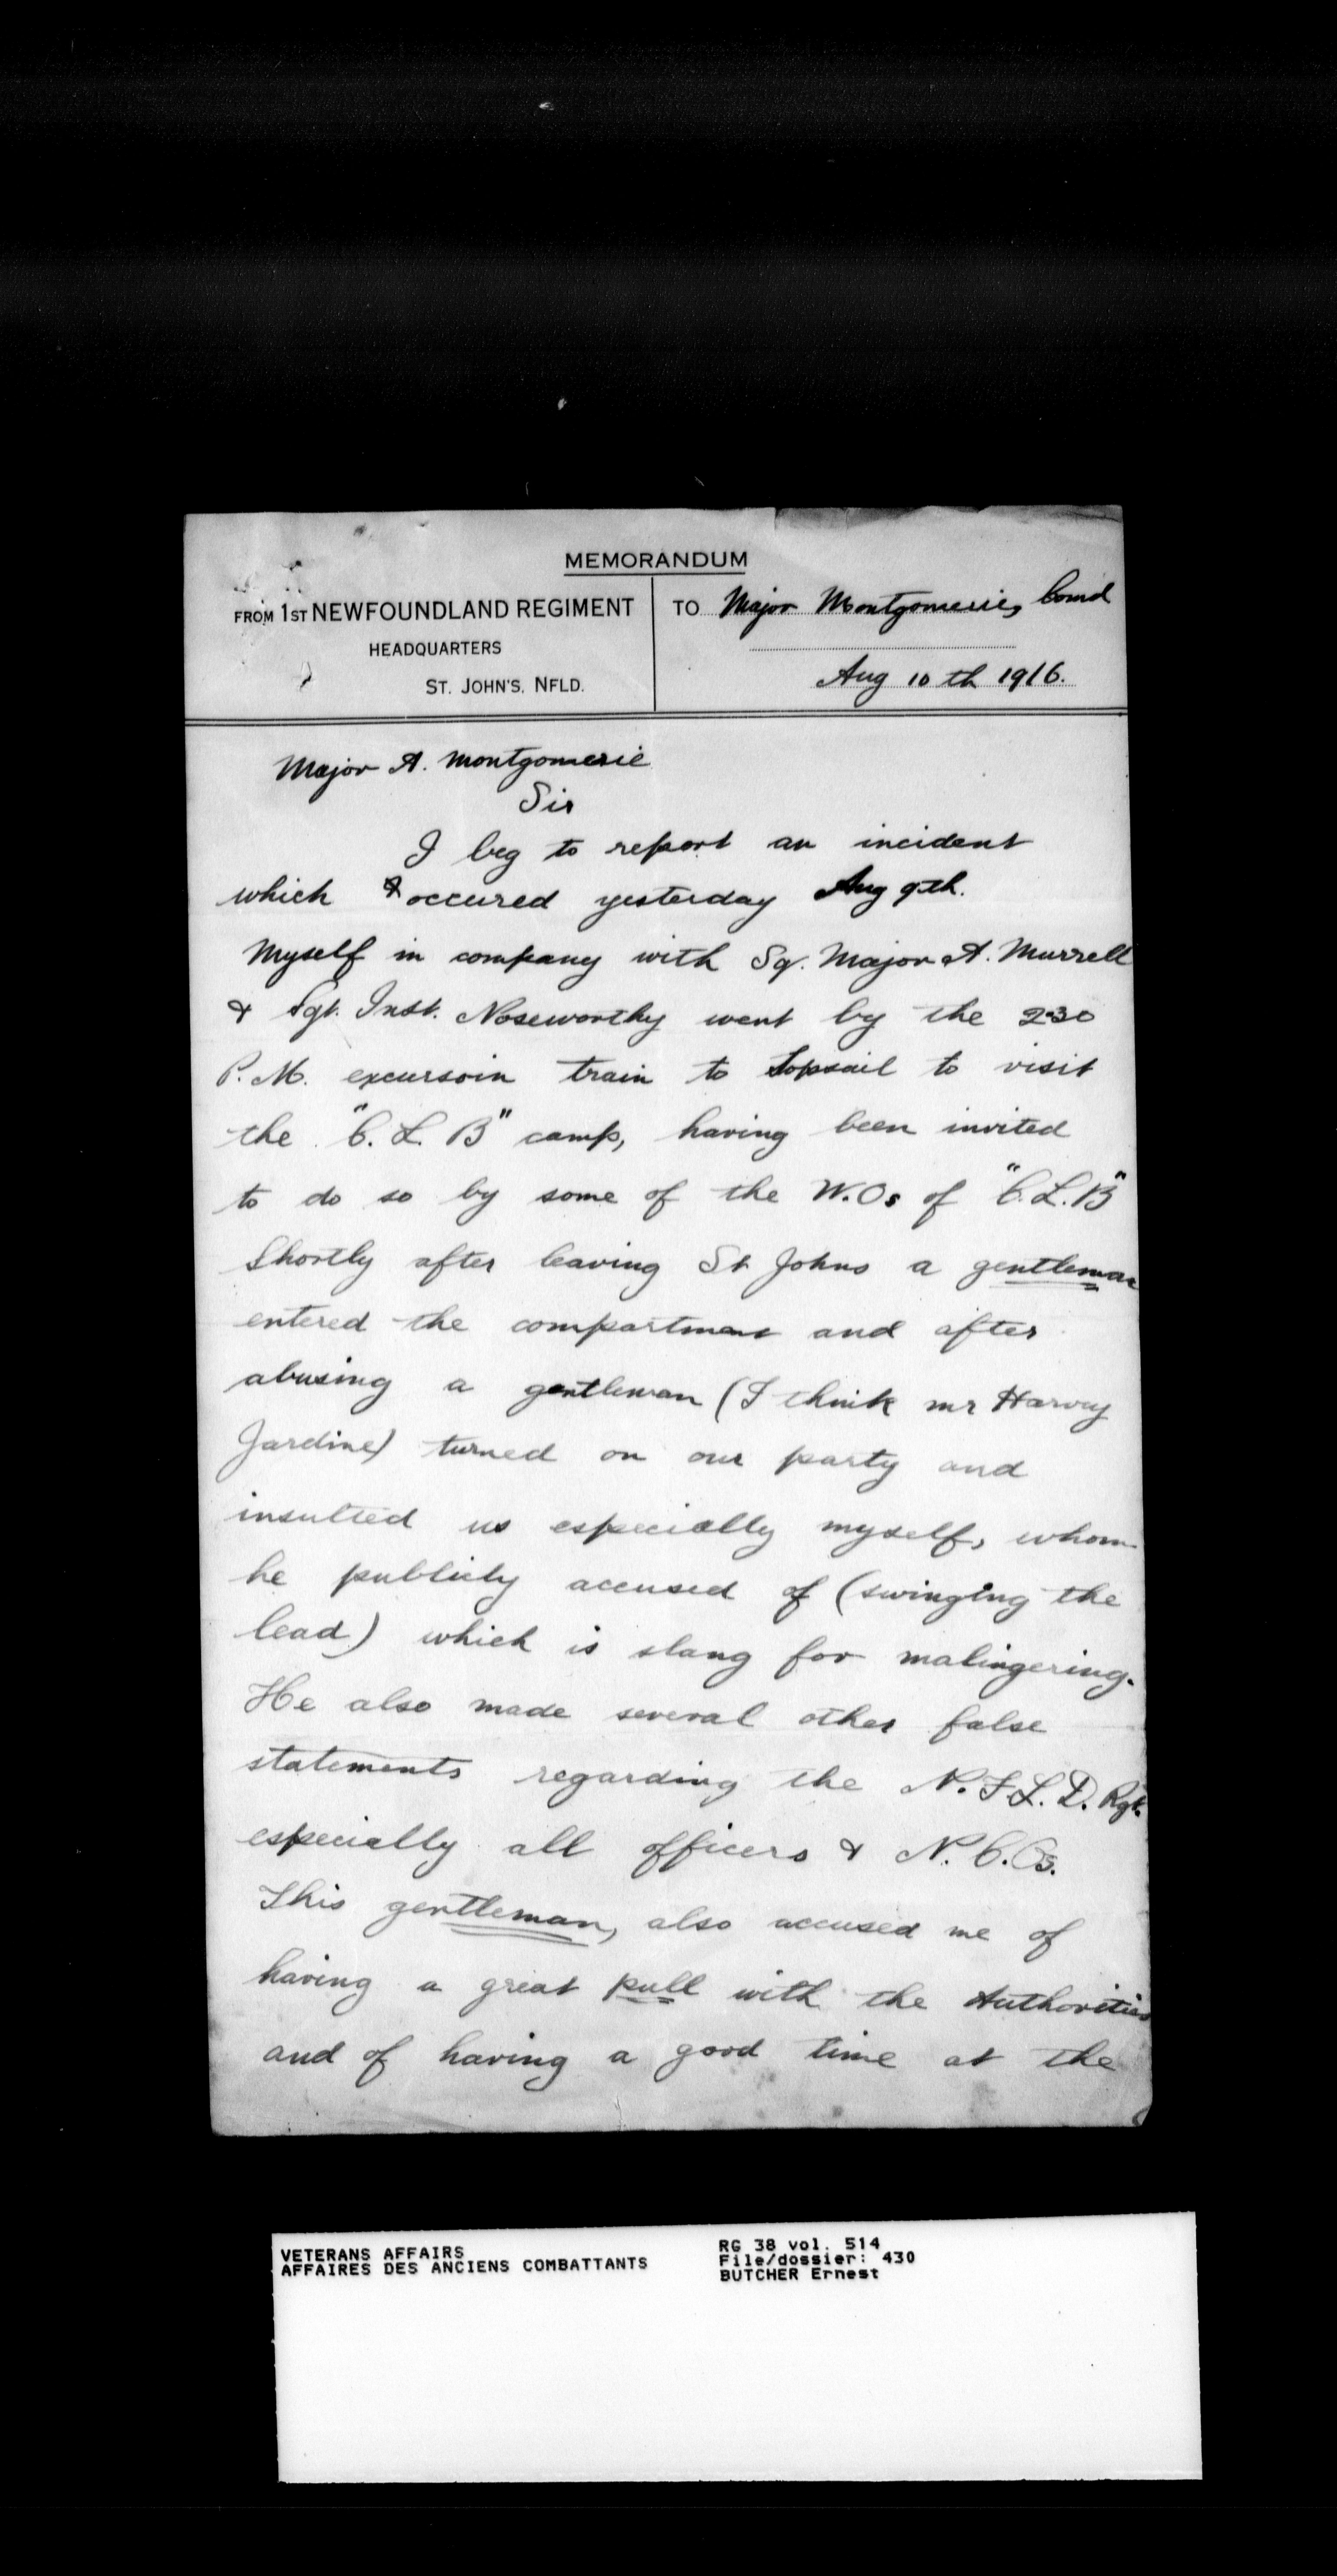 MEMORANDUM
FROM 1ST NEWFOUNDLAND REGIMENT
HEADQUARTERS
ST. JOHN'S, NFLD.
TO Major Montgomerie, Comd
Aug 10th 1916.
Major A. Montgomerie
Sir
I beg to report an incident
which occured yesterday Aug 9th.
Myself in company with Sq. Major A. Murrell
& Sgt. Inst. Noseworthy went by the 2.30
P.M. excursoin train to Topsail to visit
the "C. L. B" camp, having been invited
to do so by some of the W.Os of "C.L.B"
Shortly after leaving St Johns a gentleman
entered the compartment and after
abusing a gentleman (I think mr Harvey
Jardine) turned on our party and
insulted us especially myself, whom
he publicly accused of (swinging the
lead) which is slang for malingering.
He also made several other false
statements regarding the N.F.L.D. Rgt.
especially all officers & N.C.Os.
This gentleman, also accused me of
having a great pull with the Authorities
and of having a good time at the
VETERANS AFFAIRS
AFFAIRES DES ANCIENS COMBATTANTS
RG 38 vol. 514
File/dossier: 430
BUTCHER Ernest